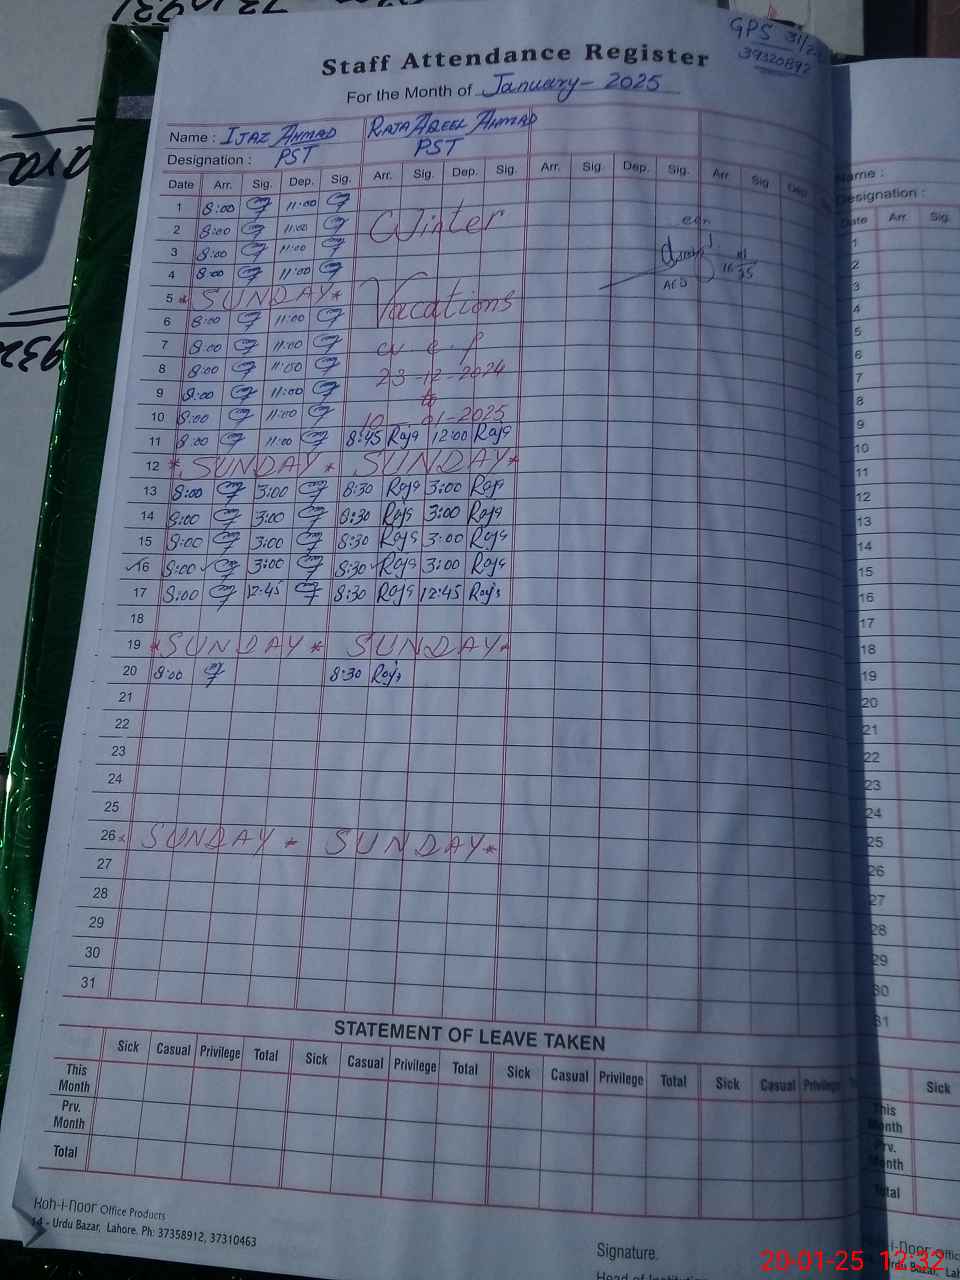 GPS 31/2-
39320892
Staff Attendance Register
For the Month of January - 2025
Name : IJAZ AHMAD RAJA AQEEL AHMAD
Designation : PST PST
Date Arr. Sig. Dep. Sig. Arr. Sig. Dep. Sig. Arr. Sig. Dep. Sig. Arr Sig. Dep
1 8:00 11:00
2 8:00 11:00 Winter
3 8:00 11:00
4 8:00 11:00
AEO
5 * SUNDAY * Vacations
6 8:00 11:00
7 8:00 11:00 w.e.f
8 8:00 11:00 23-12-2024
9 8:00 11:00 to
10 8:00 11:00 10-01-2025
11 8:00 11:00 8:45 Raja 12:00 Raja
12 * SUNDAY * SUNDAY *
13 8:00 3:00 8:30 Raja 3:00 Raja
14 8:00 3:00 8:30 Raja 3:00 Raja
15 8:00 3:00 8:30 Raja 3:00 Raja
16 8:00 3:00 8:30 Raja 3:00 Raja
17 8:00 12:45 8:30 Raja 12:45 Raja
18
19 * SUNDAY * SUNDAY *
20 8:00 8:30 Raja
21
22
23
24
25
26 * SUNDAY * SUNDAY *
27
28
29
30
31
STATEMENT OF LEAVE TAKEN
Sick Casual Privilege Total Sick Casual Privilege Total Sick Casual Privilege Total Sick Casual Privilege
This Month
Prv. Month
Total
Koh-i-Noor Office Products
14 - Urdu Bazar, Lahore. Ph: 37358912, 37310463
Signature.
Name :
Designation :
Date Arr. Sig.
1
2
3
4
5
6
7
8
9
10
11
12
13
14
15
16
17
18
19
20
21
22
23
24
25
26
27
28
29
30
31
Sick
This Month
Prv. Month
Total
20-01-25 12:32